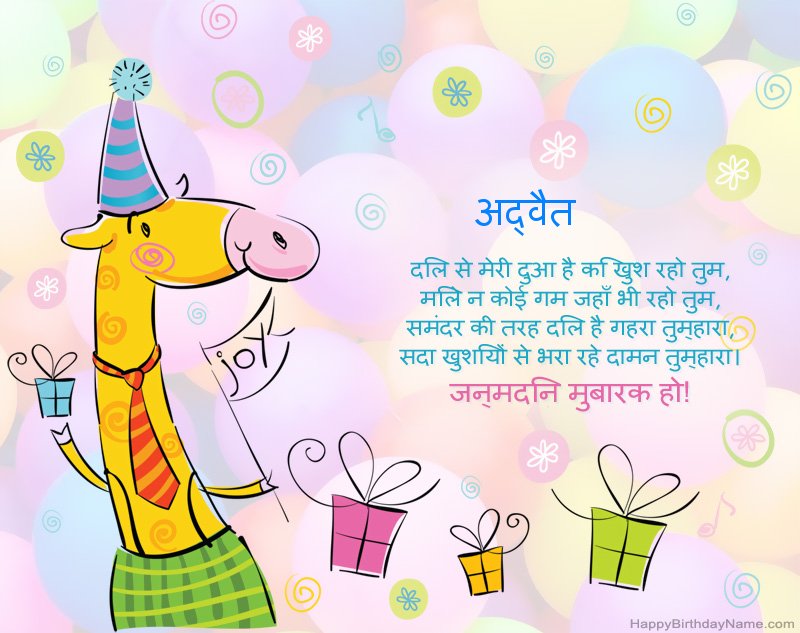 अद्वैत
दलि से मेरी दुआ है क िखुश रहो तुम,
मलिे न कोई गम जहाँ भी रहो तुम,
समंदर की तरह दलि है गहरा तुम्हारा,
सदा खुशयिों से भरा रहे दामन तुम्हारा।
जन्मदनि मुबारक हो!
joy
HappyBirthdayName.com